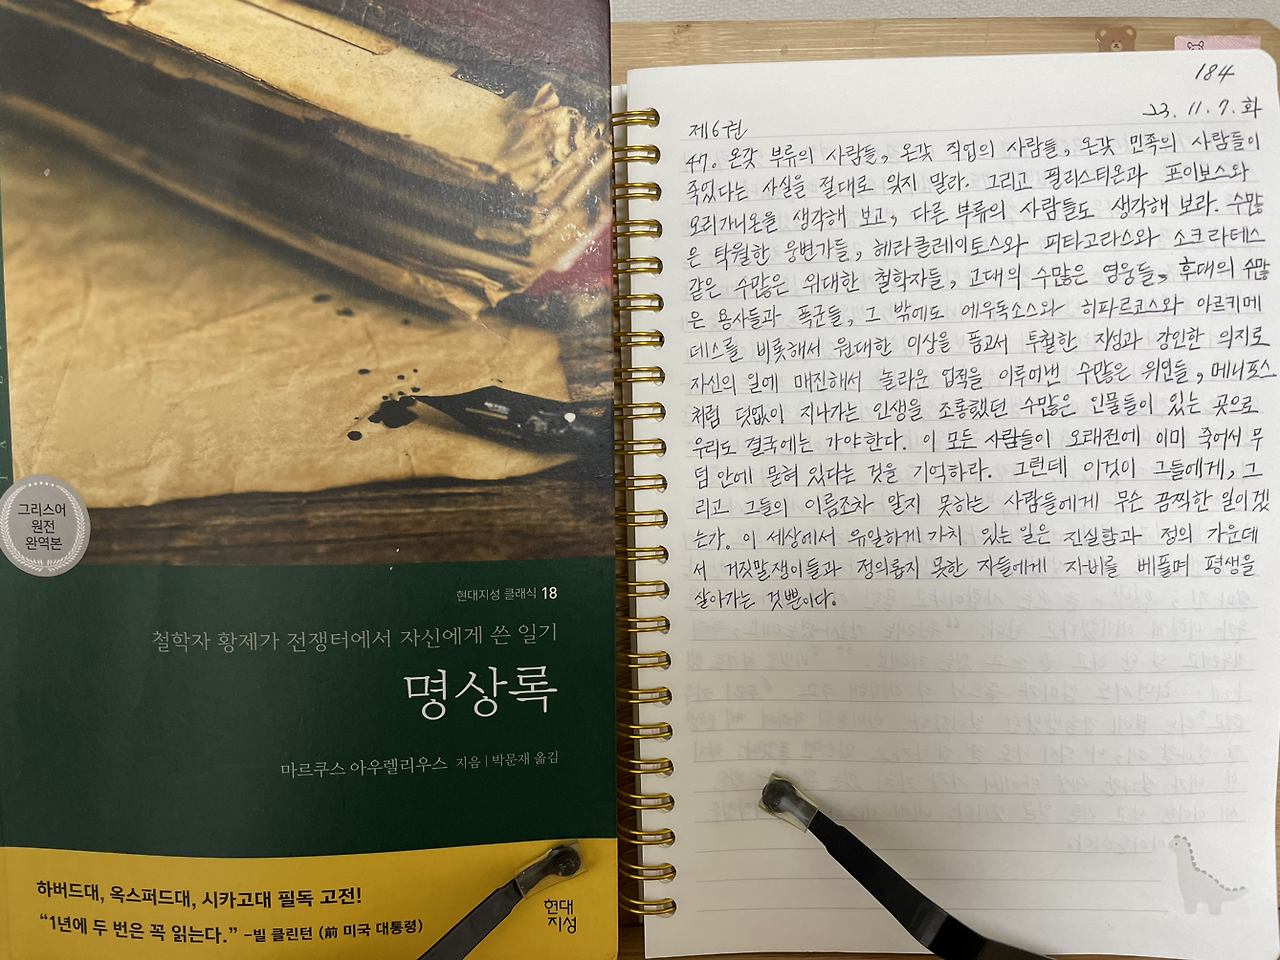 그리스어
원전
완역본
현대지성 클래식 18
철학자 황제가 전쟁터에서 자신에게 쓴 일기
명상록
마르쿠스 아우렐리우스 지음 | 박문재 옮김
하버드대, 옥스퍼드대, 시카고대 필독 고전!
“1년에 두 번은 꼭 읽는다.” -빌 클린턴 (前 미국 대통령)
현대
지성
184
23. 11. 7. 화
제6권
47. 온갖 부류의 사람들, 온갖 직업의 사람들, 온갖 민족의 사람들이
죽었다는 사실을 절대로 잊지 말라. 그리고 필리스티온과 포이보스와
오리가니온을 생각해 보고, 다른 부류의 사람들도 생각해 보라. 수많
은 탁월한 웅변가들, 헤라클레이토스와 피타고라스와 소크라테스
같은 수많은 위대한 철학자들, 고대의 수많은 영웅들, 후대의 수많
은 용사들과 폭군들, 그 밖에도 에우독소스와 히파르코스와 아르키메
데스를 비롯해서 원대한 이상을 품고서 투철한 지성과 강인한 의지로
자신의 일에 매진해서 놀라운 업적을 이루어낸 수많은 위인들, 메니포스
처럼 덧없이 지나가는 인생을 조롱했던 수많은 인물들이 있는 곳으로
우리도 결국에는 가야한다. 이 모든 사람들이 오래전에 이미 죽어서 무
덤 안에 묻혀 있다는 것을 기억하라. 그런데 이것이 그들에게, 그
리고 그들의 이름조차 알지 못하는 사람들에게 무슨 끔찍한 일이겠
는가. 이 세상에서 유일하게 가치 있는 일은 진실함과 정의 가운데
서 거짓말쟁이들과 정의롭지 못한 자들에게 자비를 베풀며 평생을
살아가는 것뿐이다.